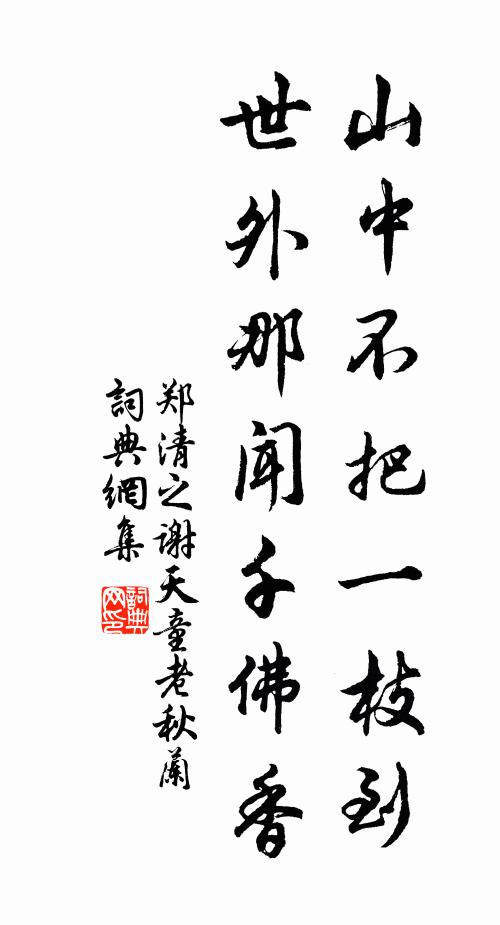 山中不把一枝到
世外那闻千佛香
郑清之谢天童老秋蘭
詞典網集
詞典网印